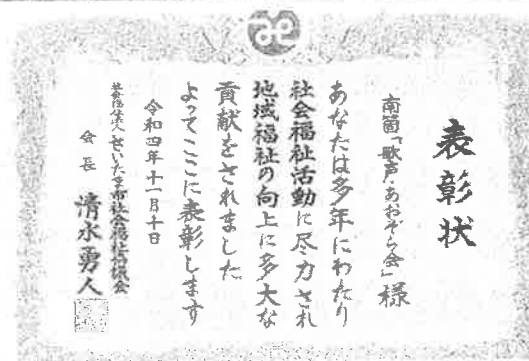 表彰状
南箇「歌声・あおぞら会」様
あなたは多年にわたり
社会福祉活動に尽力され
地域福祉の向上に多大な
貢献をされました
よってここに表彰します
令和四年十一月十日
社会福祉法人さいたま市社会福祉協議会
会長 清水勇人